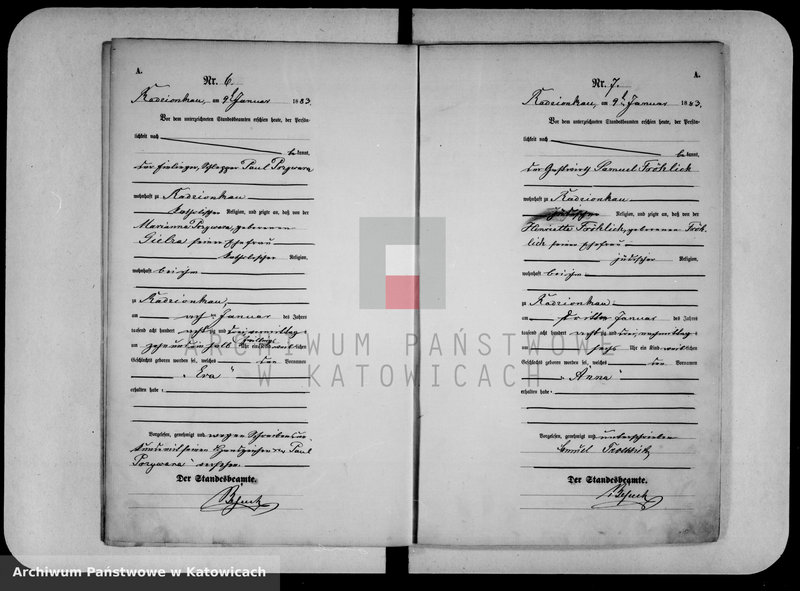 A.
Nr. 6.
Radzionkau, am 9t Januar 1883.
Vor dem unterzeichneten Standesbeamten erschien heute, der Persön-
lichkeit nach
be kannt,
der Einlieger, Schlepper Paul Pozywara
wohnhaft zu Radzionkau
katholischer Religion, und zeigte an, daß von der
Marianna Pozywara, geborenen
Gielza seiner Ehefrau
katholischer Religion,
wohnhaft bei ihm
zu Radzionkau,
am Januar des Jahres
tausend acht hundert achtzig und drei vormittags
um Uhr ein Kind weiblichen
Geschlechts geboren worden sei, welches den Vornamen
"Eva"
erhalten habe.
Vorgelesen, genehmigt und wegen Schreibens un-
Paul
Pozywara
Der Standesbeamte.
A.
Nr. 7.
Radzionkau, am 9t Januar 1883.
Vor dem unterzeichneten Standesbeamten erschien heute, der Persön-
lichkeit nach
be kannt,
der Gastwirth Samuel Fröhlich
wohnhaft zu Radzionkau
jüdischer Religion, und zeigte an, daß von der
Henriette Fröhlich, geborenen Fröh-
lich seiner Ehefrau
jüdischer Religion,
wohnhaft bei ihm
zu Radzionkau
am dritten Januar des Jahres
tausend acht hundert achtzig und drei, nachmittags
um sechs Uhr ein Kind weiblichen
Geschlechts geboren worden sei, welches den Vornamen
"Anna"
erhalten habe.
Vorgelesen, genehmigt und unterschrieben
Der Standesbeamte.
ARCHIWUM PAŃSTWOWE
W KATOWICACH
Archiwum Państwowe w Katowicach